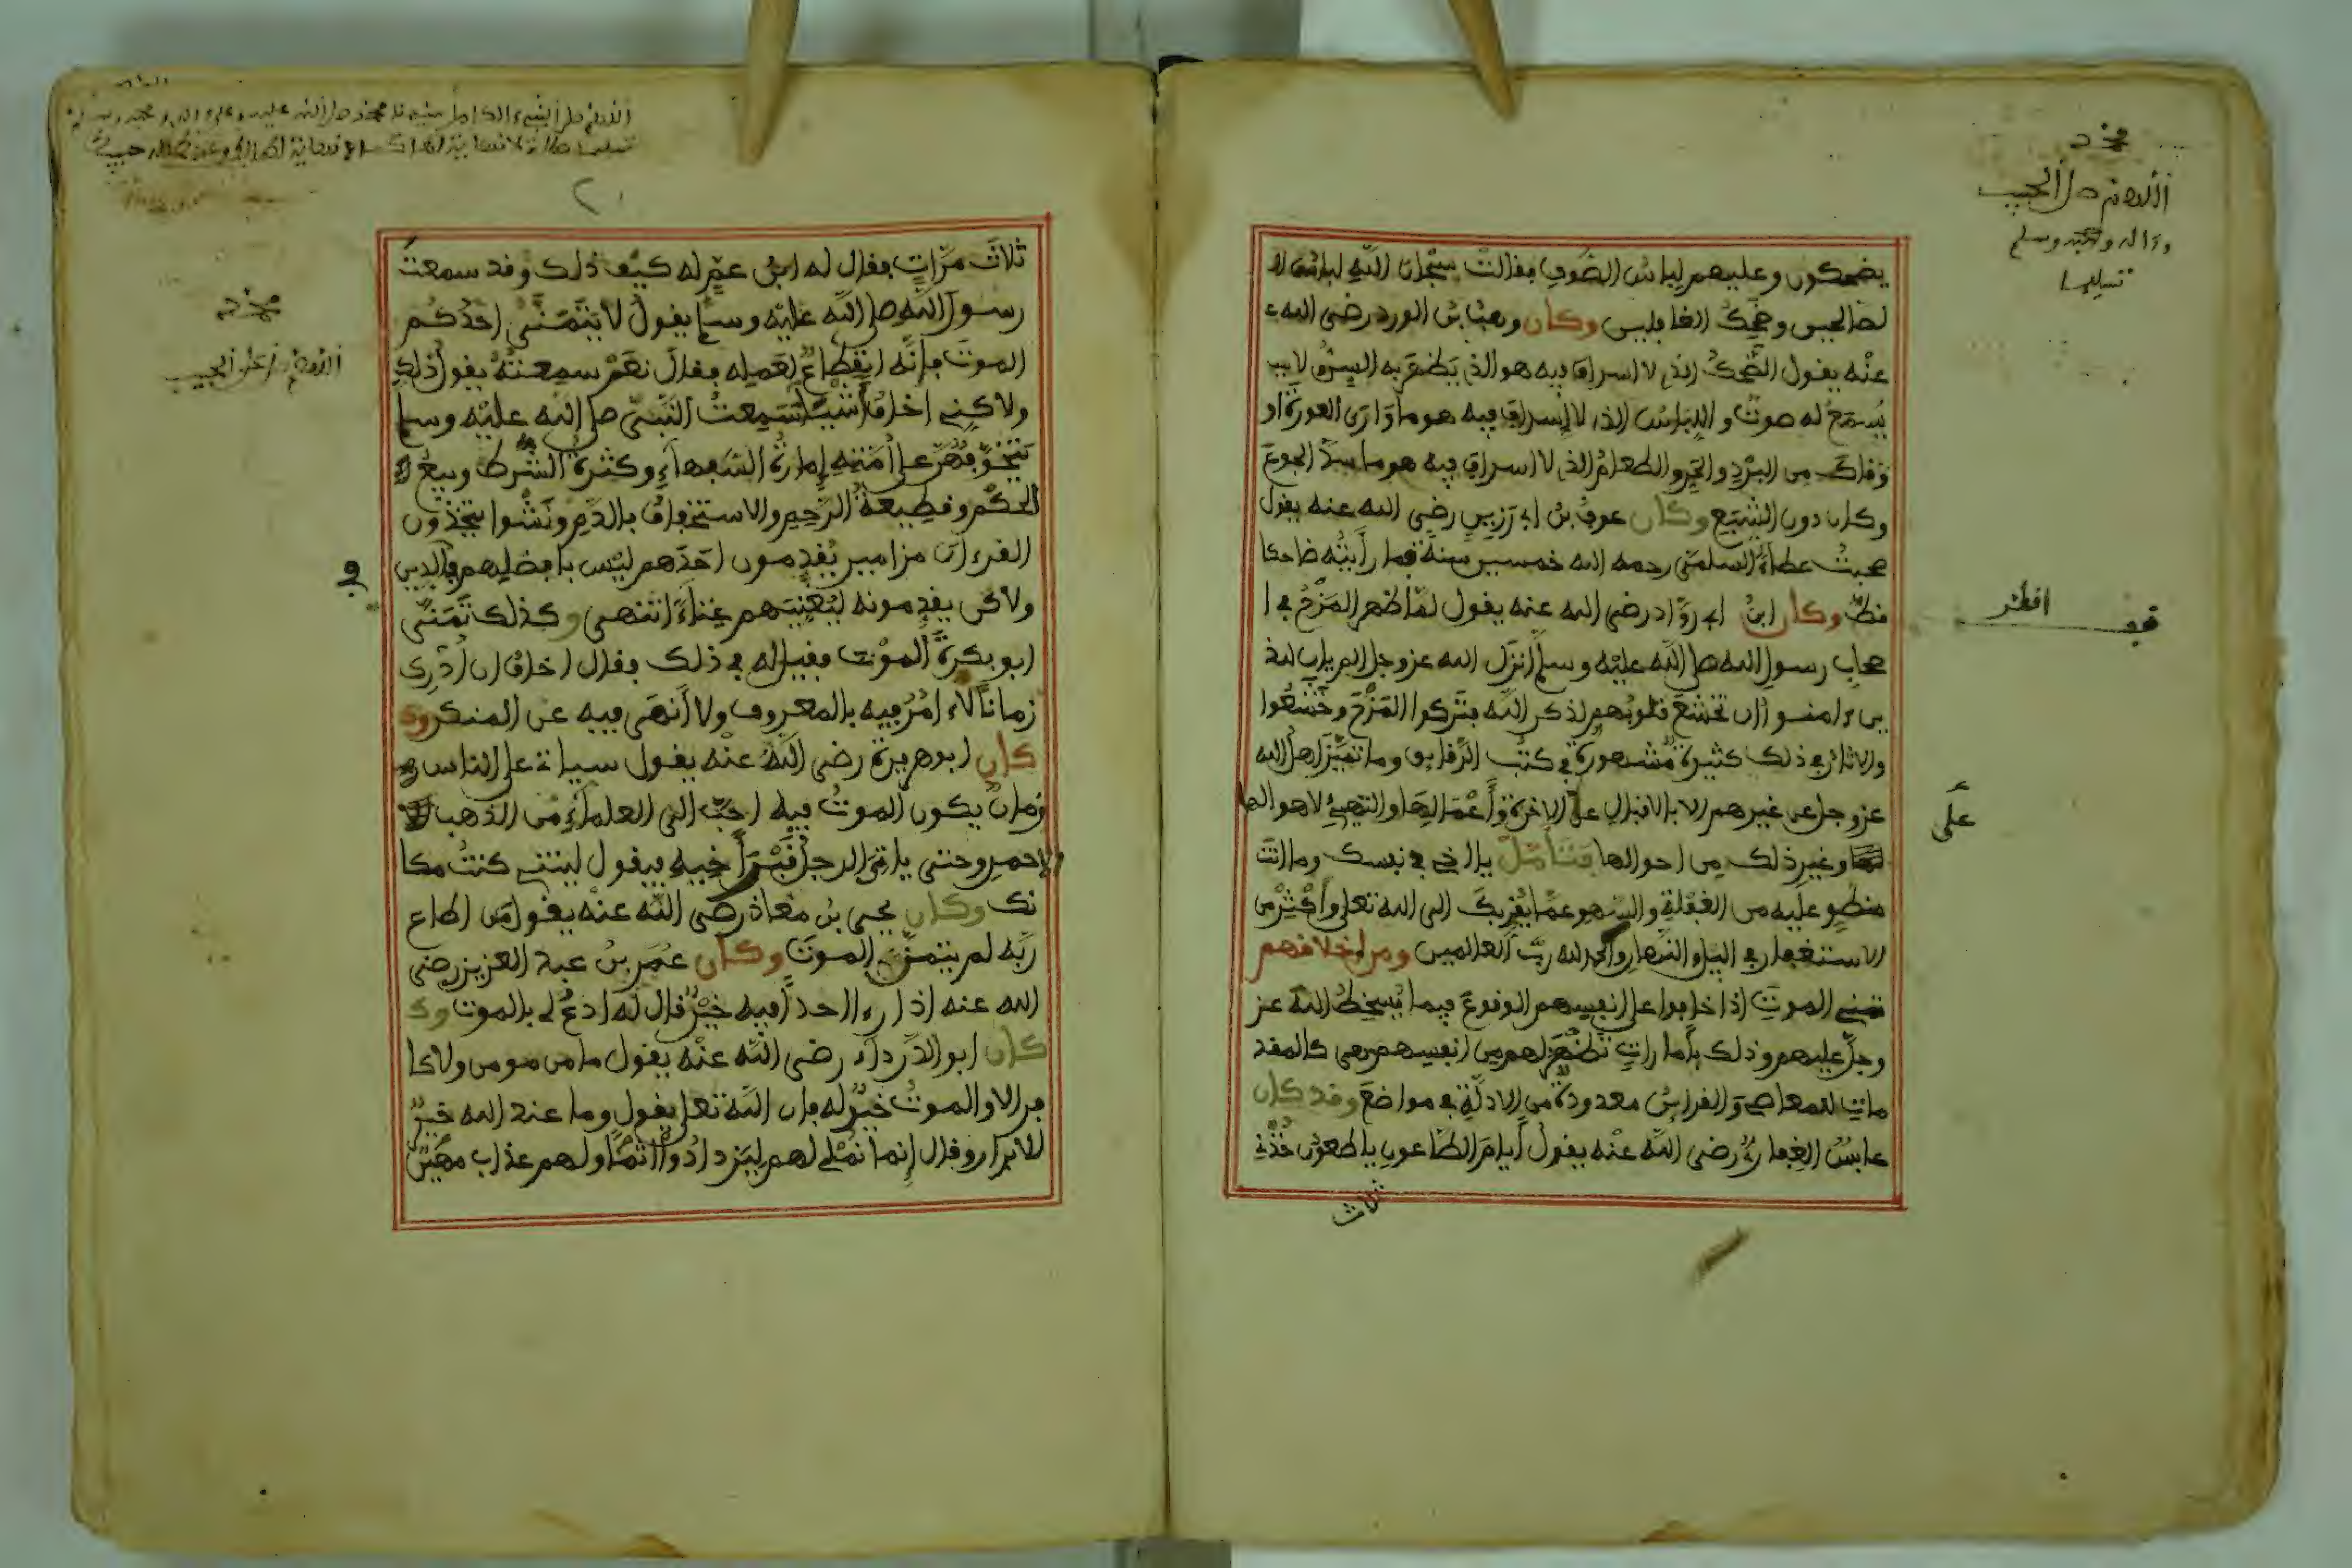 محمد
اللهم صل الحبيب
وءاله وصحبه وسلم
تسليما
يضحكون وعليهم لباس الصوف فقالت سبحان الله لباس ا
لصالحين وضحك الغافلين وكان وهب بن الورد رضي الله
عنه يقول الضحك الذي لا اسراف فيه هو الذي يظهر به السن ولا
يسمع له صوت واللباس الذي لا اسراف فيه هو ما وارى العورة او
وقاك من البرد والحر والطعام الذي لا اسراف فيه هو ما سد الجوع
وكان دون الشبع وكان عون بن ابي رضي الله عنه يقول
صحبت عطاء السلمي رحمه الله خمسين سنة فما رأيته ضاحكا
قط وكان ابن ابي رواد رضي الله عنه يقول لما ظهر المزح في ا
صحاب رسول الله صلى الله عليه وسلم انزل الله عز وجل الم يان للذ
ين ءامنوا ان تخشع قلوبهم لذكر الله فتركوا المزح وخشعوا
والاثار في ذلك كثيرة مشهورة في كتب الرقايق وما تميز اهل الله
عز وجل عن غيرهم الا بالاقبال على الاخرة وأعمالها والتهيئ لاهوالها
وغير ذلك من احوالها فتأمل يا اخي في نفسك وما انت
منطو عليه من الغفلة والسهو عما يقربك الى الله تعلى وأكثر من
الاستغفار في اليل والنهار والحمد لله رب العالمين ومن اخلاقهم
تمني الموت اذا خافوا على انفسهم الوقوع فيما يسخط الله عز
وجل عليهم وذلك بأمارات تظهر لهم من انفسهم هي كالمقد
مات للمعاصي والقرائن معدودة من الادلة في مواضع وقد كان
عابس الغفاري رضي الله عنه يقول أيام الطاعون يا طعون خذني
ثلاث
افطر
على
ثلاث مرات فقال له ابن عم له كيف ذلك وقد سمعت
رسول الله صلى الله عليه وسلم يقول لا يتمنى احدكم
الموت فإنه انقطاع لعمله فقال نعم سمعته يقول ذلك
ولاكني اخاف شيئا سمعت النبي صلى الله عليه وسلم
يتخوفهن على أمته إمارة السفهاء وكثرة الشرط وبيع
الحكم وقطيعة الرحم والاستخفاف بالدم ونشوا يتخذون
القرءان مزامير يقدمون احدهم ليس بافضلهم في الدين
ولاكن يقدمونه ليغنيهم غناء انتهى وكذلك تمنى
ابو بكرة الموت فقيل له في ذلك فقال اخاف ان أدرى
زمانا لاءامر فيه بالمعروف ولا أنهى فيه عن المنكر وك
كان ابو هريرة رضي الله عنه يقول سياتي على الناس
زمان يكون الموت فيه احب الى العلماء من الذهب
الاحمر وحتى ياتي الرجل قبر أخيه فيقول ليتني كنت مكا
نك وكان يحيى بن معاذ رضي الله عنه يقول من اطاع
ربه لم يتمن الموت وكان عمر بن عبد العزيز رضي
الله عنه اذا رءا احدا فيه خير قال له ادع لي بالموت وك
كان ابو الدرداء رضي الله عنه يقول ما من مومن ولا كا
فر الا والموت خير له فان الله تعلى يقول وما عند الله خير
للابرار وقال إنما نملي لهم ليزدادوا إثما ولهم عذاب مهين
محمد